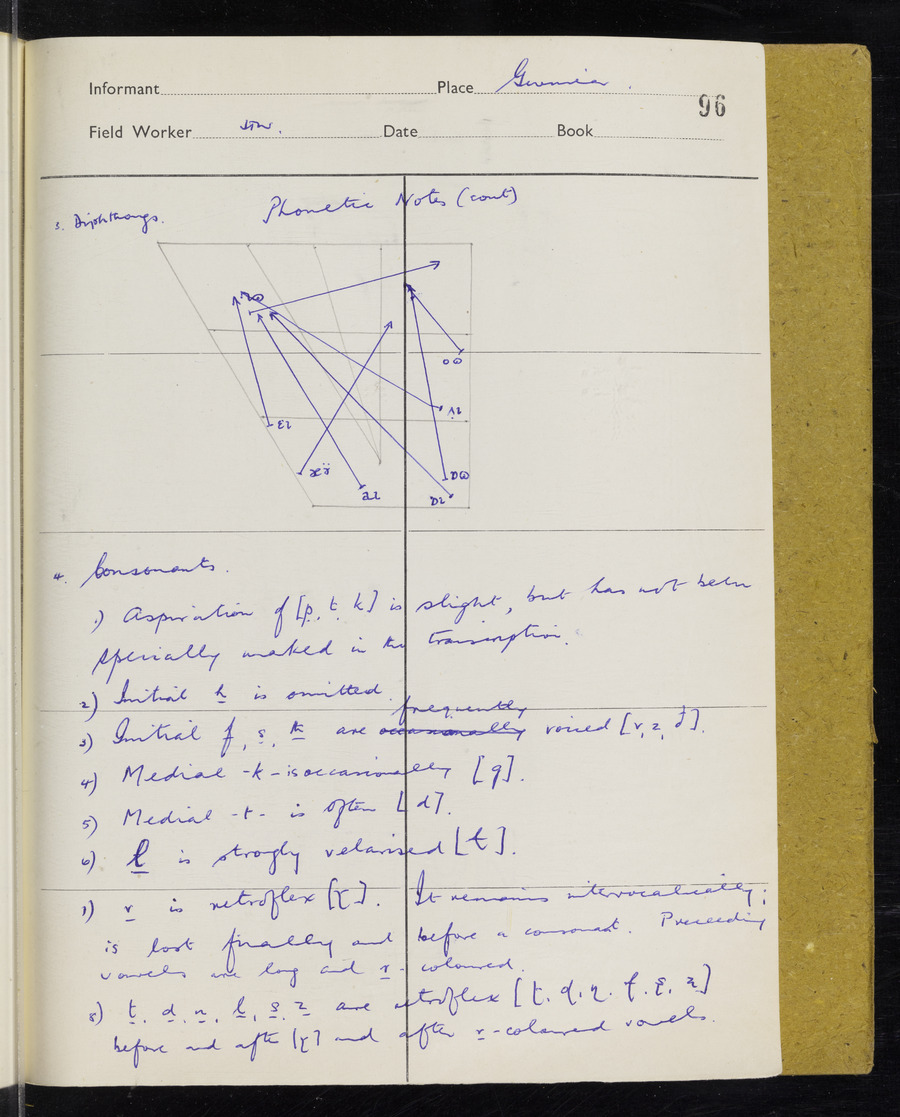 Informant Place Gwinear.
96
Field Worker Date Book
Phonetic Notes (cont)
3. Diphthongs.
ɪɷ
oɷ
ʌ̣ɪ
ɛɪ
æɪ̈
aɪ
ɒɷ
ɒɪ
4. Consonants.
1) Aspiration of [p, t, k] is slight, but has not been
specially marked in the transcription.
2) Initial h is omitted.
frequently
3) Initial f, s, are occasionally voiced [v, z, ].
4) Medial -k- is occasionally [g].
5) Medial -t- is often [d].
6) l is strongly velarised [ɫ].
7) r is retroflex [ɽ]. It remains intervocalically;
is lost finally and before a consonant. Preceeding
vowels are long and r-coloured.
8) t, d, n, l, s, z are retroflex [ṭ, ḍ, ṇ, ḷ, ṣ, ẓ]
before and after [ɽ] and after r-coloured vowels.